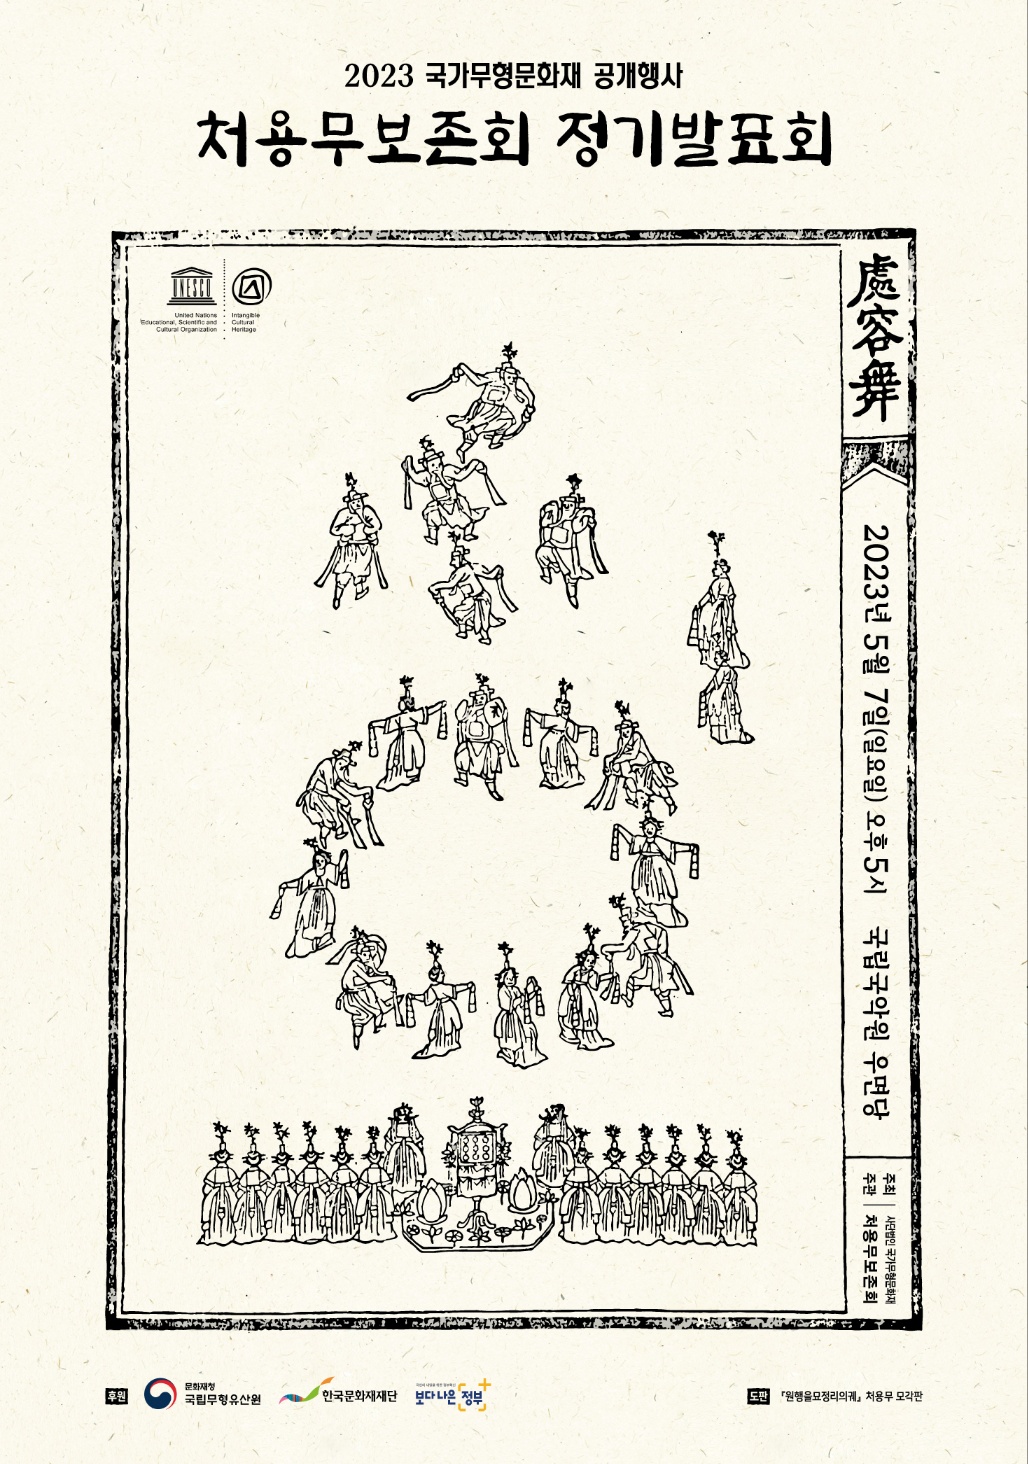 2023 국가무형문화재 공개행사
처용무보존회 정기발표회
UNESCO
United Nations
Educational, Scientific and
Cultural Organization
Intangible
Cultural
Heritage
處容舞
2023년 5월 7일(일요일) 오후 5시 국립국악원 우면당
주최
주관
사단법인 국가무형문화재
처용무보존회
후원
문화재청
국립무형유산원
한국문화재재단
보다나은 정부
도판
『원행을묘정리의궤』 처용무 모각판